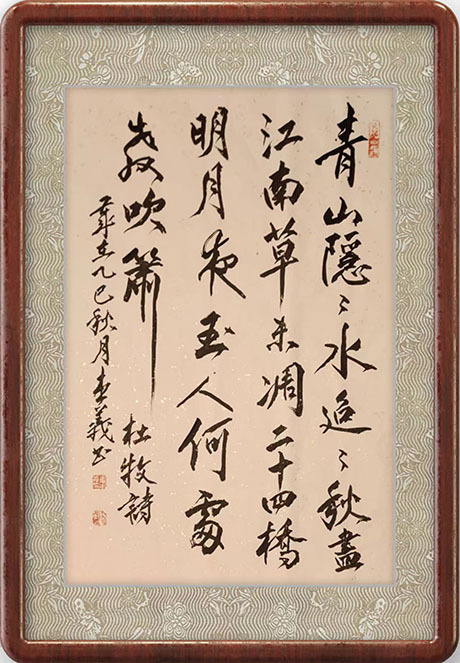 青山隱〻水迢〻秋盡
江南草未凋二十四橋
明月夜玉人何處
教吹簫
杜牧詩
歲在乙巳秋月